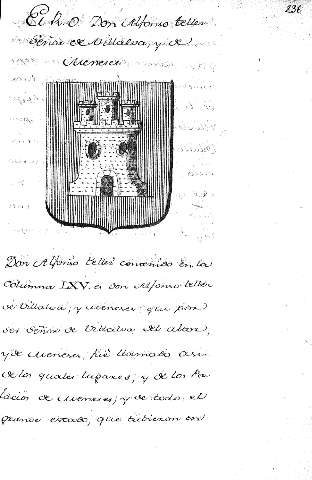 236
El R. O. Don Alfonso tellez
Señor de Villalva, y de
Meneses
Don Alfonso tellez contenido en la
Columna LXV. es don Alfonso tellez
de Villalva, y Meneses que por
ser Señor de Villalva del alcor,
y de Meneses, fue llamado asi
de los quales lugares, y de los Pa-
lacios de Meneses, y de todo el
grande estado, que tubieron en